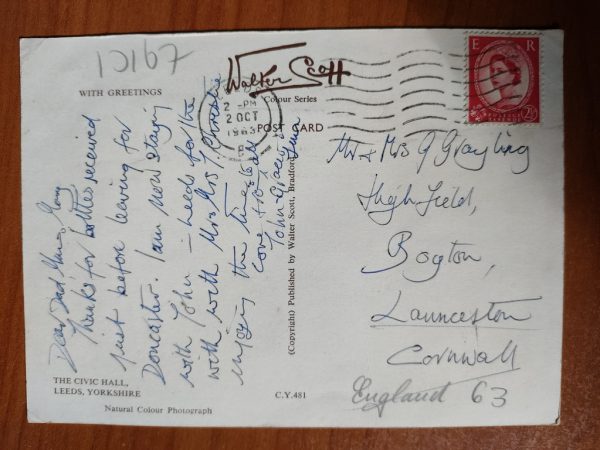 16171
WITH GREETINGS
Walter Scott
Colour Series
POST CARD
2 - PM
2 OCT
1963
E R
2½
Dear Dad
Thanks for letters received
just before leaving for
Doncaster. I am now staying
with John - Leeds for the
with Mr & Mrs Christie
enjoying the
love to
John
(Copyright) Published by Walter Scott, Bradford
Mr & Mrs G Grayling
High Field,
Boyton,
Launceston
Cornwall
England 63
THE CIVIC HALL,
LEEDS, YORKSHIRE
Natural Colour Photograph
C.Y.481